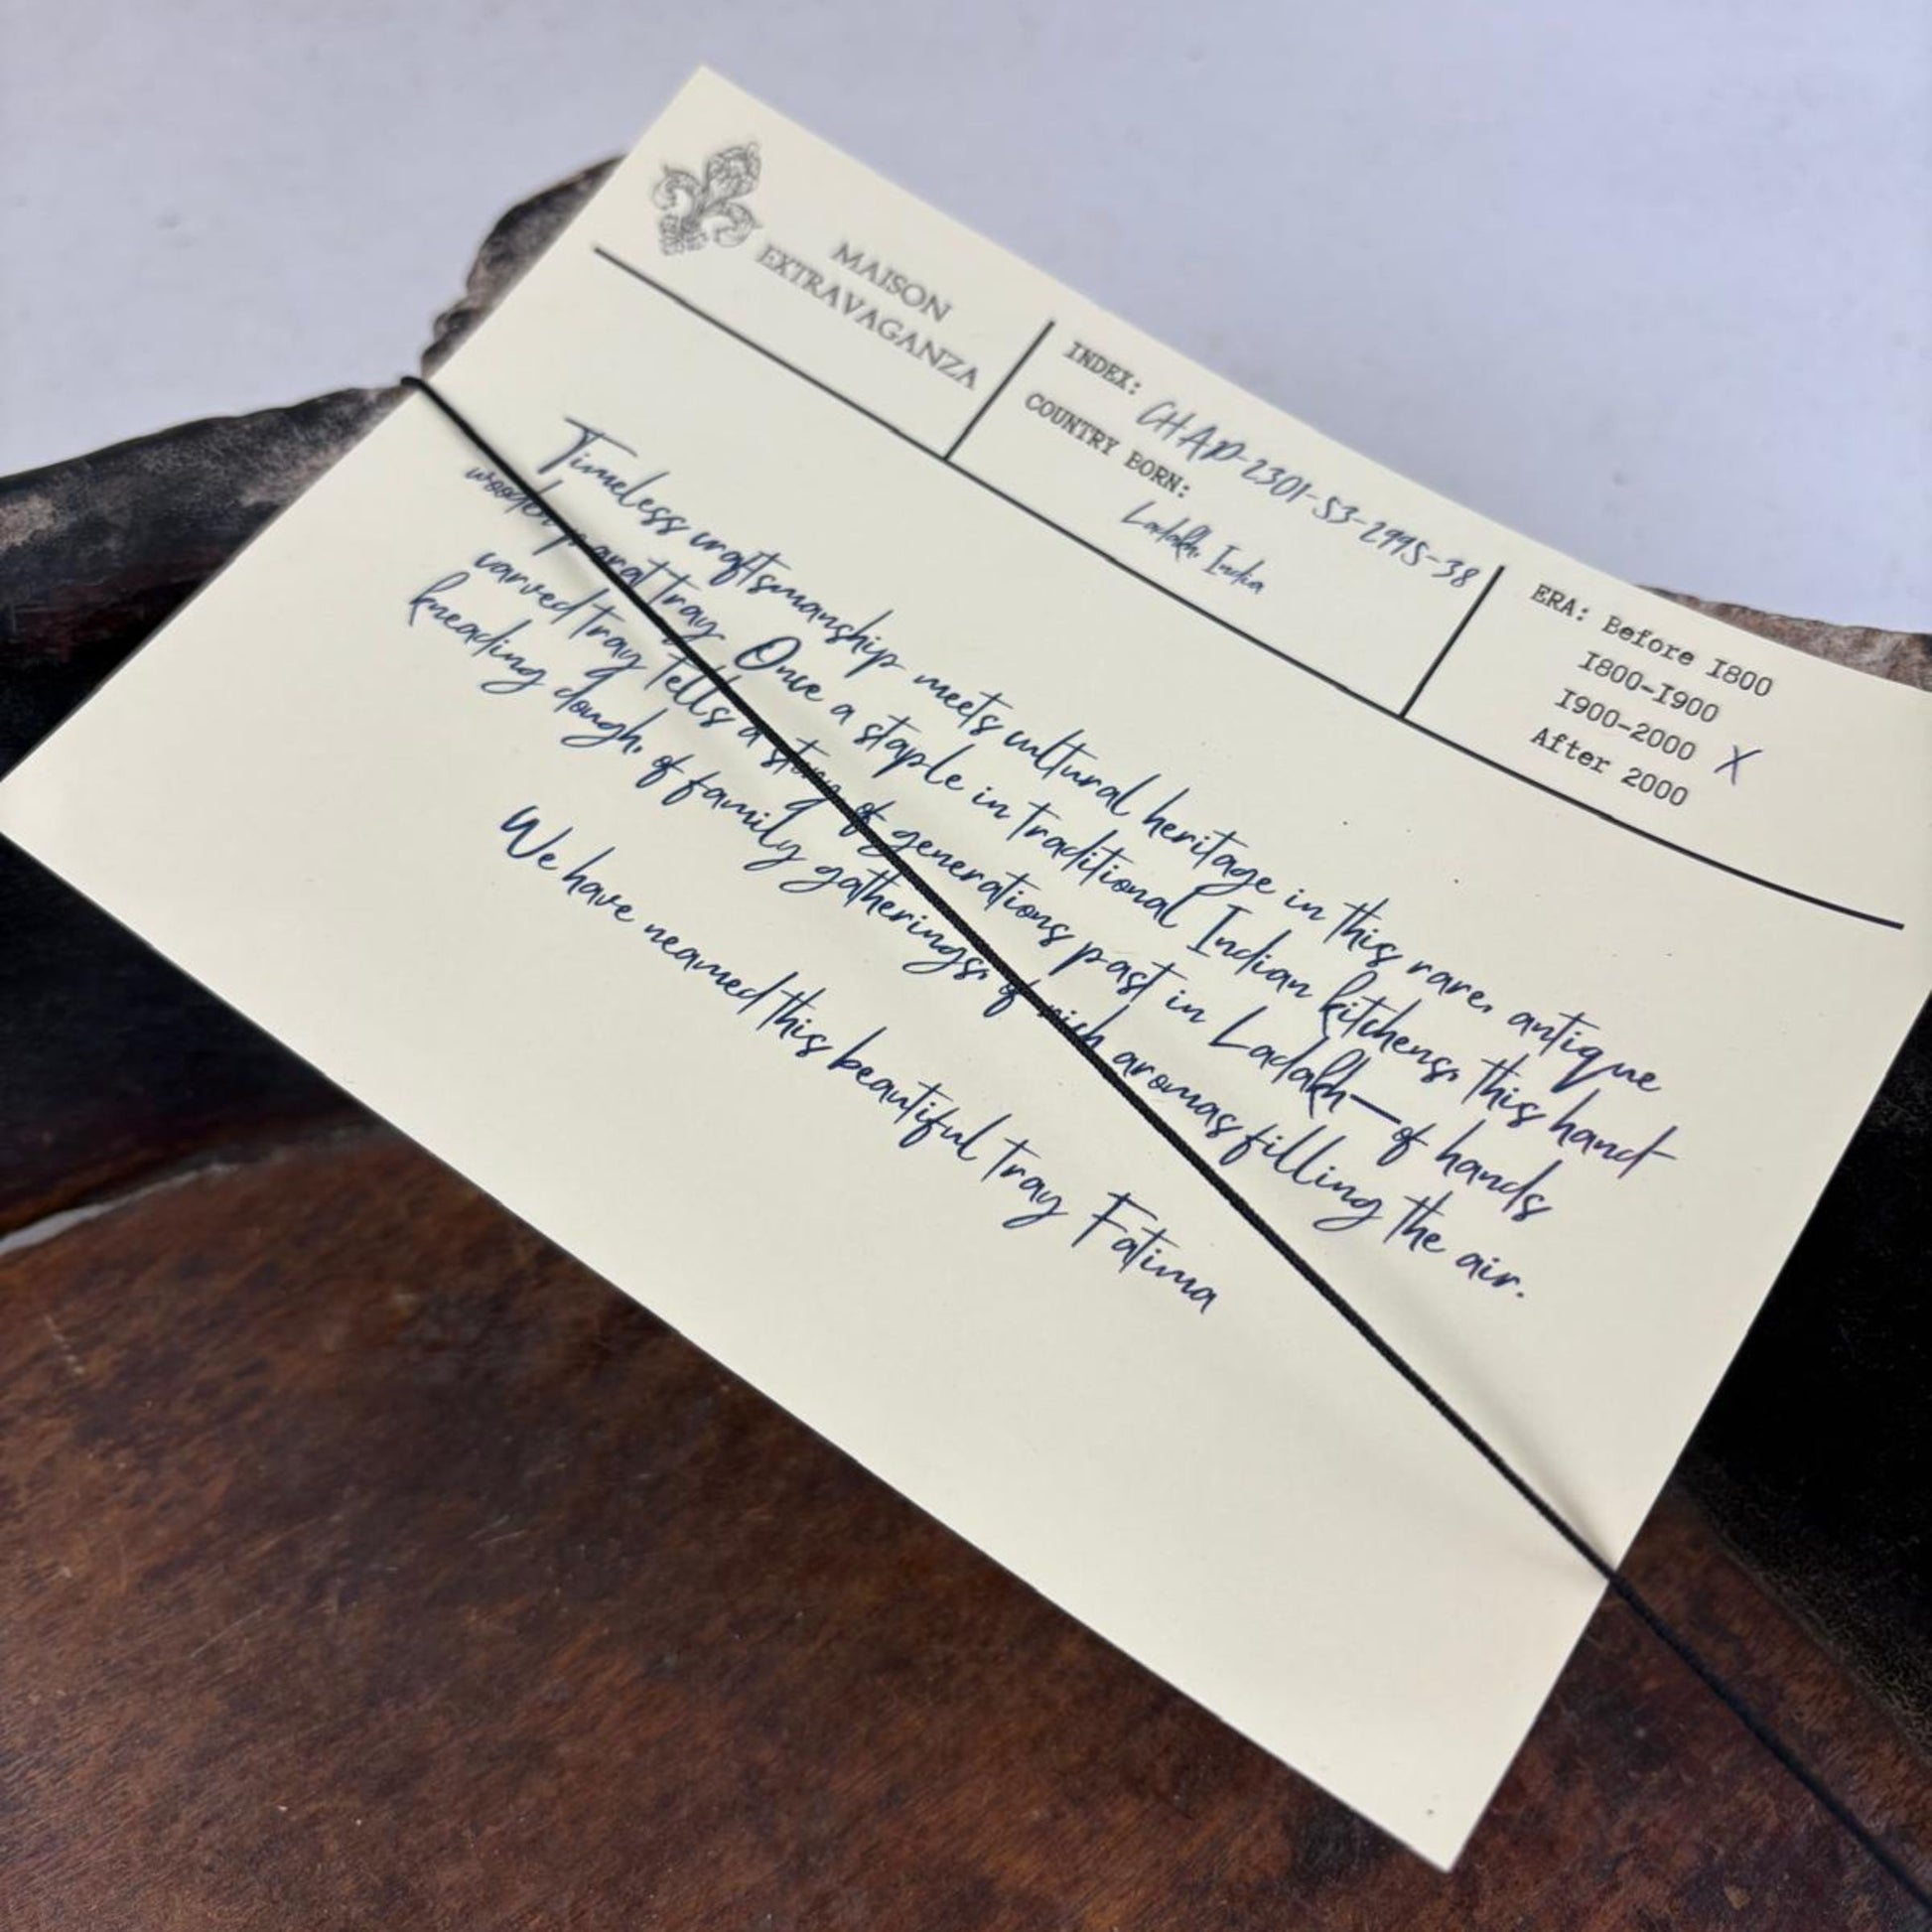 MAISON
EXTRAVAGANZA
INDEX: CHAP-2301-S3-2995-38
COUNTRY BORN:
Ladakh, India
ERA: Before 1800
1800-1900
1900-2000 X
After 2000
Timeless craftsmanship meets cultural heritage in this rare, antique
wooden parat tray. Once a staple in traditional Indian kitchens, this hand
carved tray tells a story of generations past in Ladakh—of hands
kneading dough, of family gatherings, of rich aromas filling the air.
We have neamed this beautiful tray Fatima